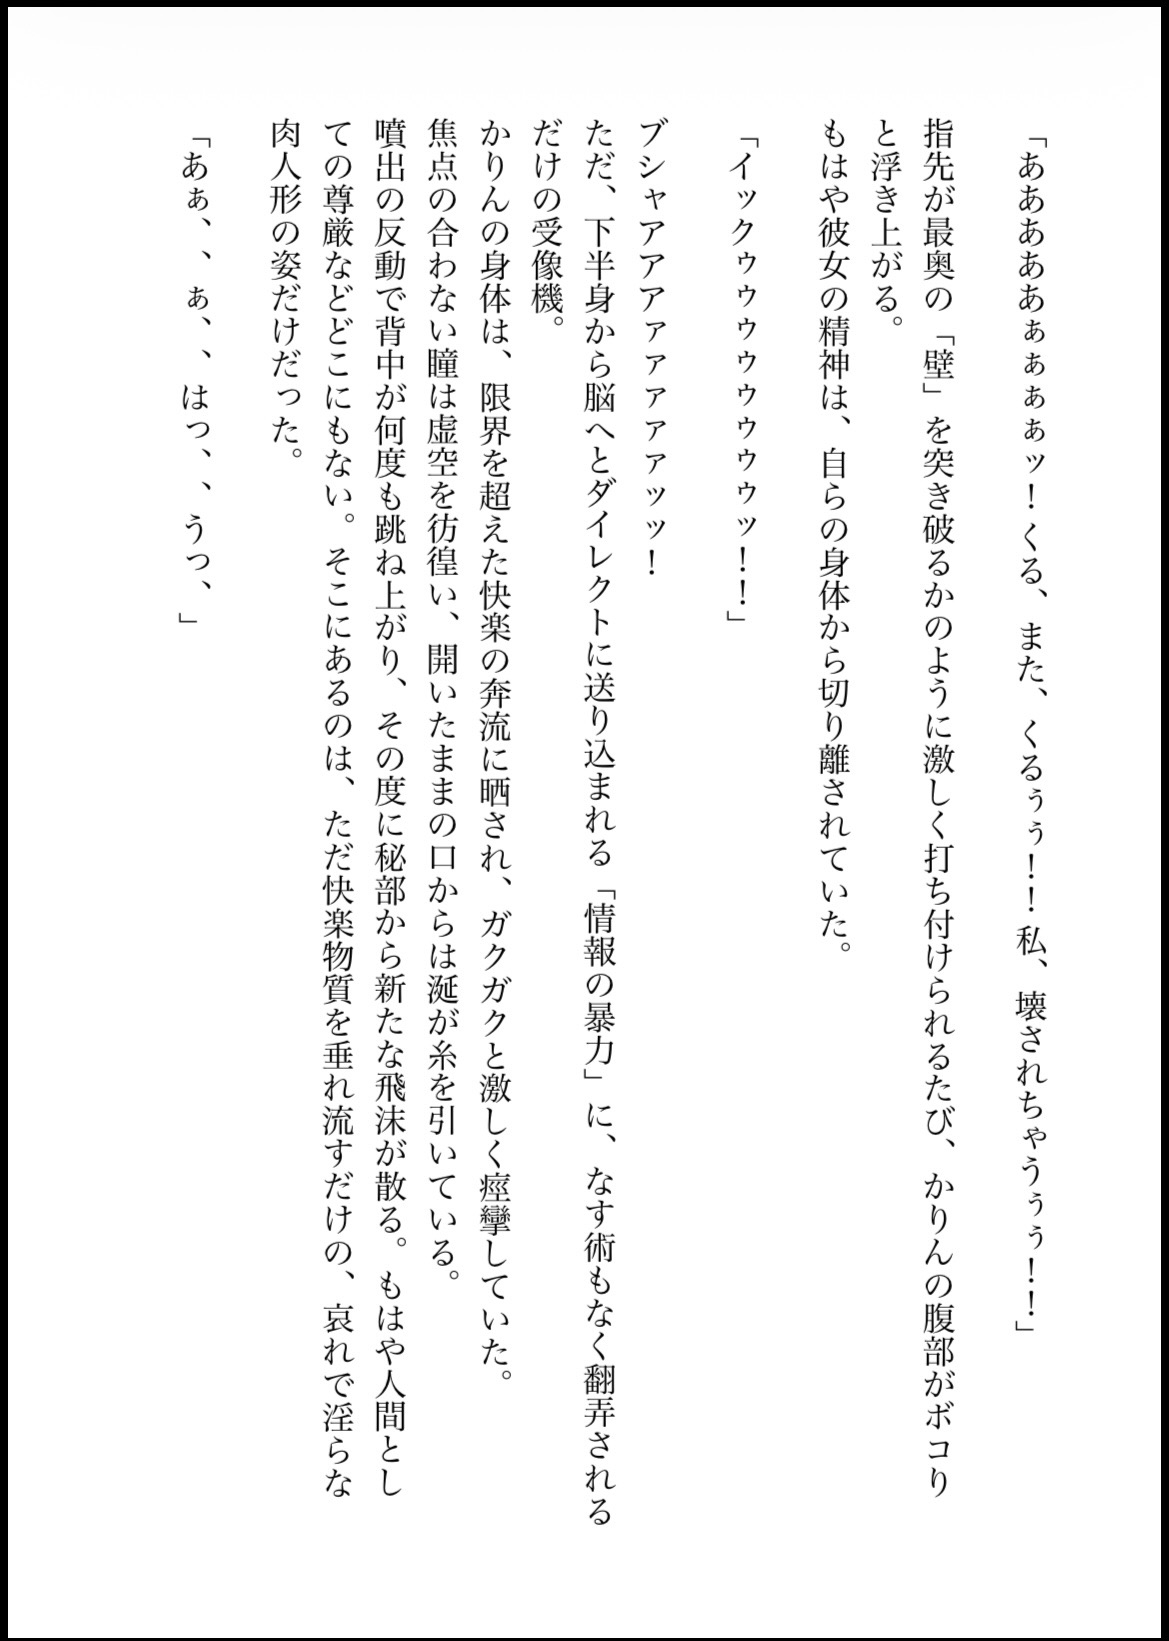 「ああああぁぁぁぁッ！くる、また、くるぅぅ！！私、壊されちゃうぅぅ！！」
指先が最奥の「壁」を突き破るかのように激しく打ち付けられるたび、かりんの腹部がボコり
と浮き上がる。
もはや彼女の精神は、自らの身体から切り離されていた。
「イックゥゥゥゥゥゥゥゥッ！！」
ブシャアアアァァァァァッッ！
ただ、下半身から脳へとダイレクトに送り込まれる「情報の暴力」に、なす術もなく翻弄される
だけの受像機。
かりんの身体は、限界を超えた快楽の奔流に晒され、ガクガクと激しく痙攣していた。
焦点の合わない瞳は虚空を彷徨い、開いたままの口からは涎が糸を引いている。
噴出の反動で背中が何度も跳ね上がり、その度に秘部から新たな飛沫が散る。もはや人間とし
ての尊厳などどこにもない。そこにあるのは、ただ快楽物質を垂れ流すだけの、哀れで淫らな
肉人形の姿だけだった。
「あぁ、、ぁ、、はっ、、うっ、」